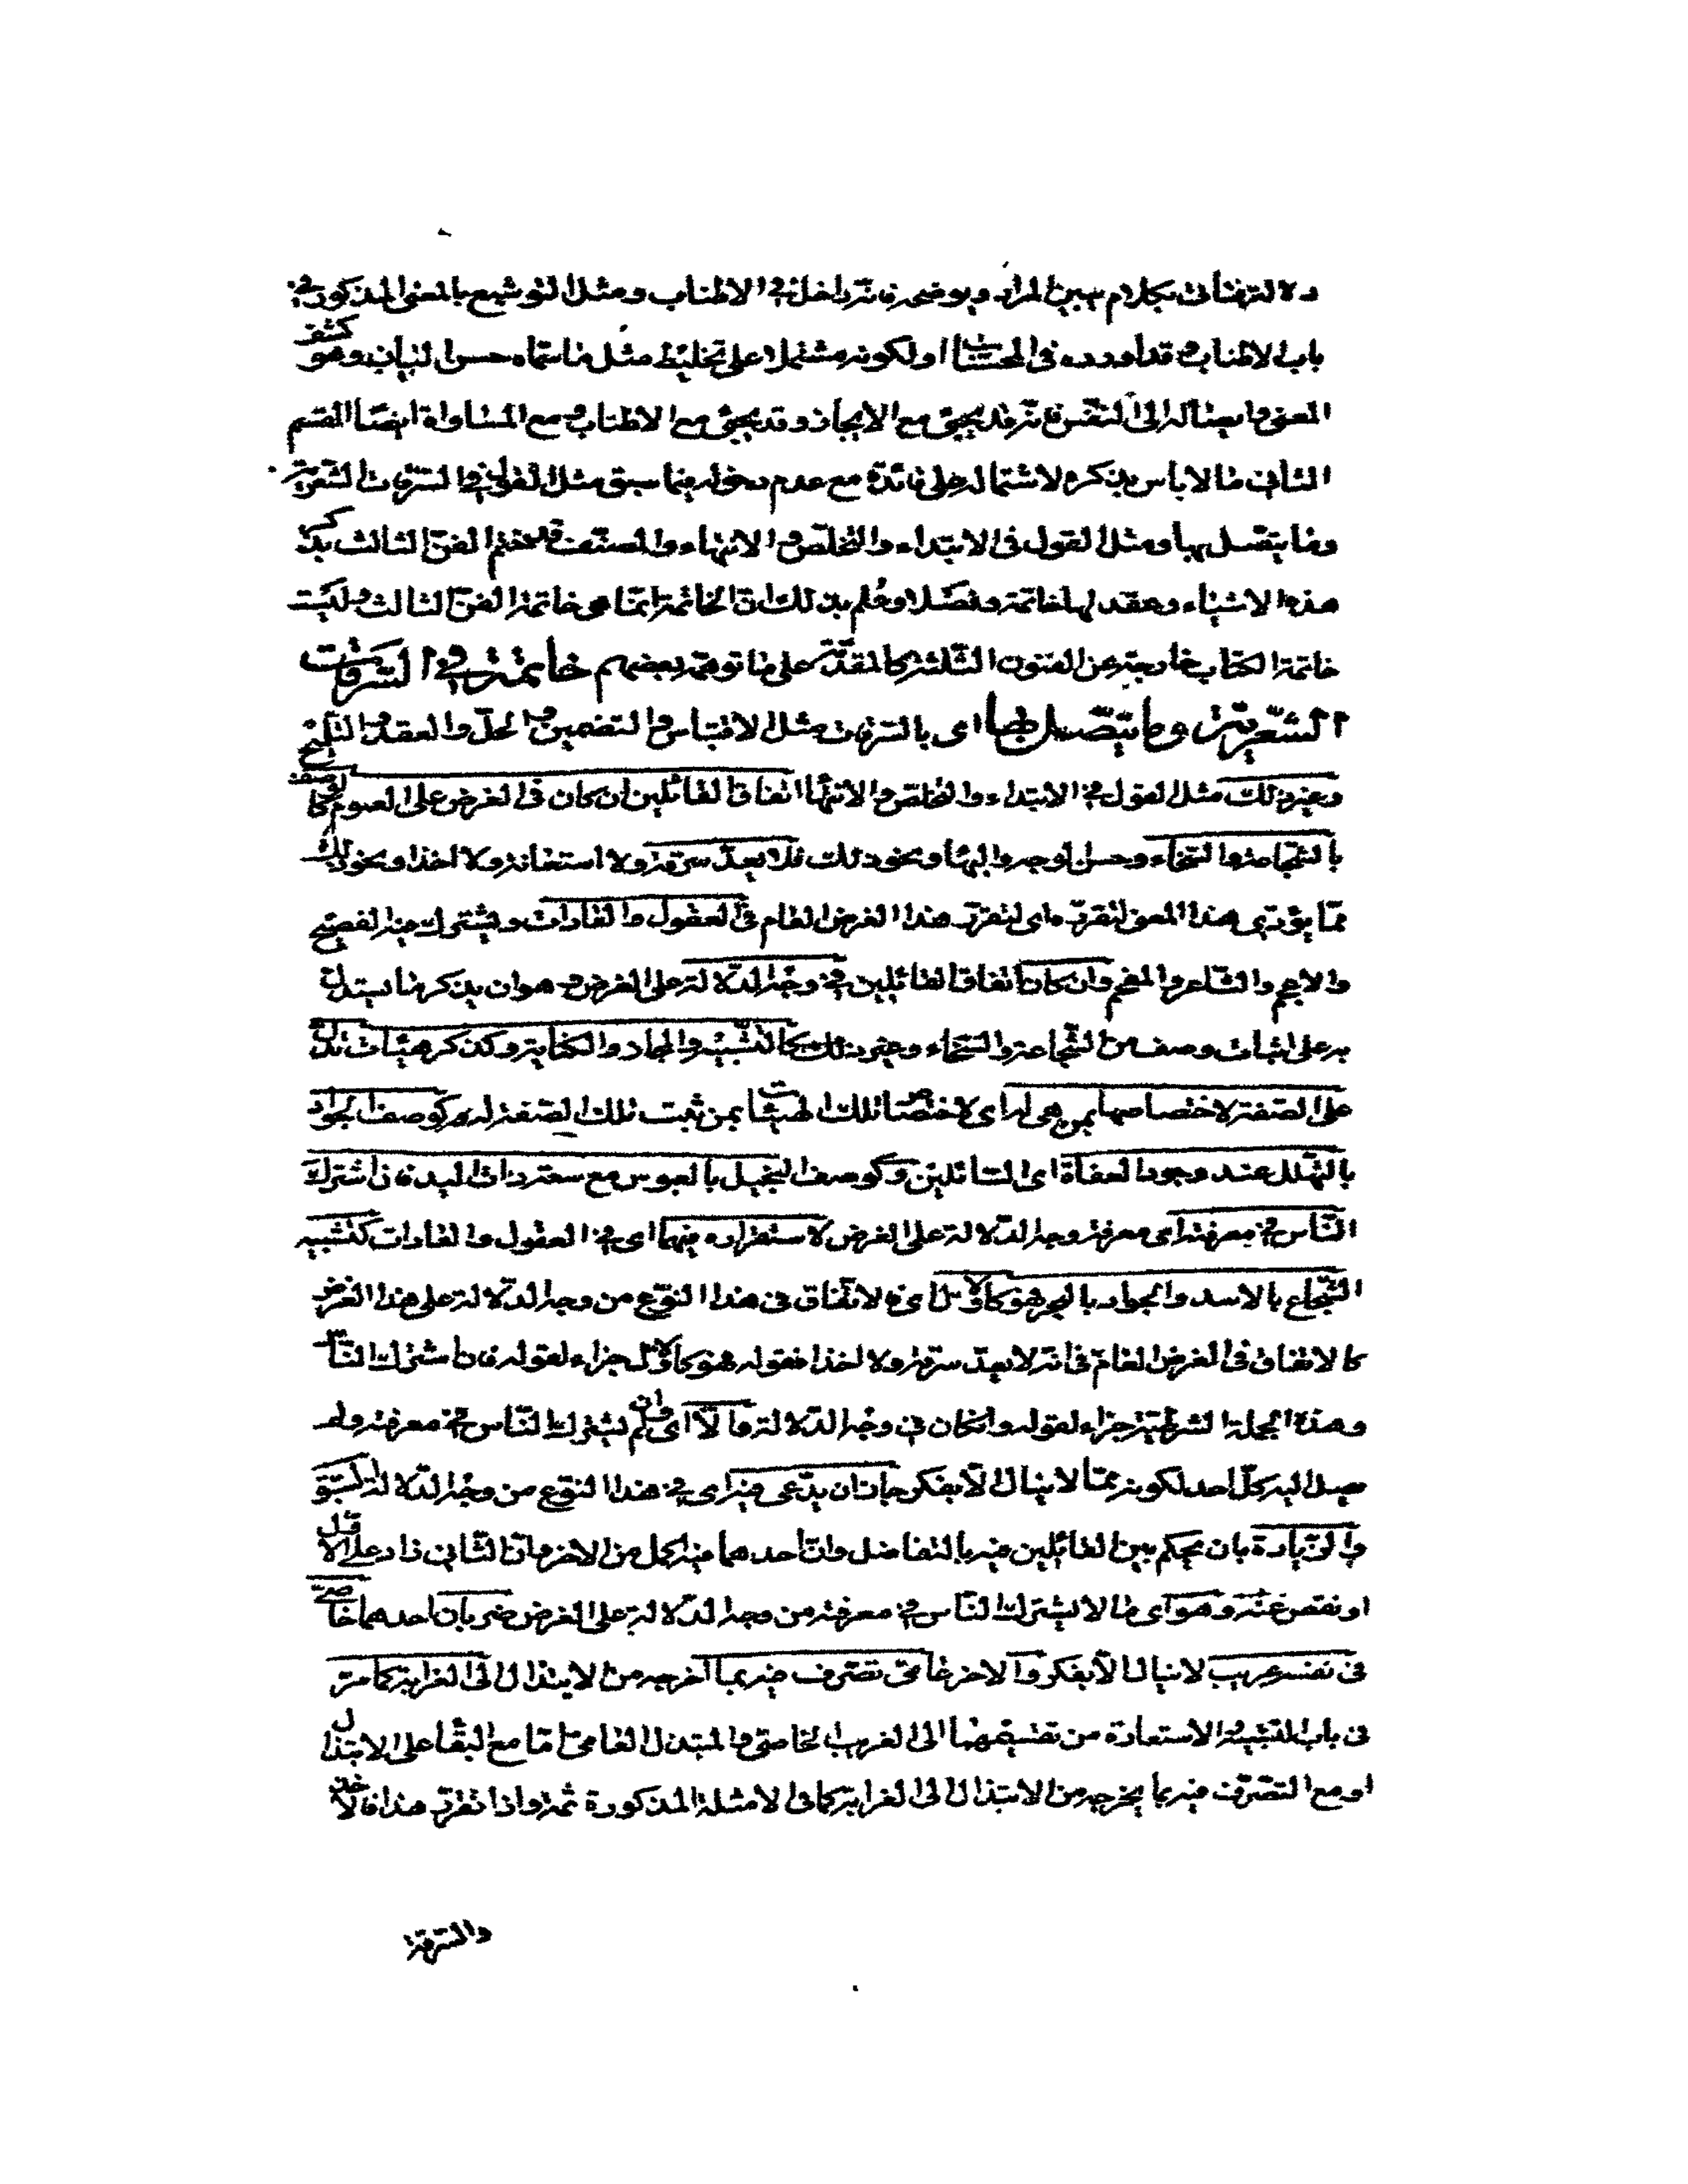 دلالته فتاتى بكلام يبين المراد ويوضحه فانه داخل فى الاطناب ومثل التوشيع بالمعنى المذكور فى
باب الاطناب وقد اورده فى المحسنات او لكونه مشتملا على تخليط مثل ما سماه حسن البيان وهو كشف
المعنى وايصاله الى النفس فانه قد يجئ مع الايجاز وقد يجئ مع الاطناب ومع المساواة ايضا القسم
الثانى ما لا باس بذكره لاشتماله على فائدة مع عدم دخوله فيما سبق مثل القول فى السرقات الشعرية
وما يتصل بها ومثل القول فى الابتداء والتخلص والانتهاء والمصنف قد ختم الفن الثالث بذكر
هذه الاشياء وعقد لها خاتمة وفصلا وعلم بذلك ان الخاتمة انما هى خاتمة الفن الثالث وليست
خاتمة الكتاب خارجة عن الفنون الثلثة كالمقدمة على ما توهمه بعضهم خاتمة فى السرقات
الشعرية وما يتصل بها اى بالسرقات مثل الاقتباس والتضمين والحل والعقد والتلميح
وغير ذلك مثل القول فى الابتداء والتخلص والانتها اتفاق القائلين ان كان فى الغرض على العموم كالوصف
بالشجاعة والسخاء وحسن الوجه والبهاء ونحو ذلك فلا يعد سرقة ولا استعانة ولا اخذا ونحو ذلك
مما يؤدى هذا المعنى لتقرره اى لتقرر هذا الغرض العام فى العقول والعادات ويشترك فيه الفصيح
والاعجم والشاعر والمفحم وان كان اتفاق القائلين فى وجه الدلالة على الغرض وهو ان يذكر ما يستدل
به على اثبات وصف من الشجاعة والسخاء وغير ذلك كالتشبيه والمجاز والكناية وكذكر هيئات تدل
على الصفة لاختصاصها بمن هى له اى لاختصاص تلك الهيئات بمن ثبت تلك الصفة له كوصف الجواد
بالتهلل عند وجود العفاة اى السائلين وكوصف البخيل بالعبوس مع سعة ذات اليد فان اشترك
الناس فى معرفته اى معرفة وجه الدلالة على الغرض لاستقراره فيهما اى فى العقول والعادات كتشبيه
الشجاع بالاسد والجواد بالبحر فهو كالاول اى فالاتفاق فى هذا النوع من وجه الدلالة على هذا الغرض
كالاتفاق فى الغرض العام فى انه لا يعد سرقة ولا اخذا فقوله فهو كالاول جزاء لقوله فان اشترك الناس
وهذه الجملة الشرطية جزاء لقوله وان كان فى وجه الدلالة والا اى وان لم يشترك الناس فى معرفته ولم
يصل اليه كل احد لكونه مما لا ينال الا بفكر جاز ان يدعى فيه اى فى هذا النوع من وجه الدلالة السبق
والزيادة بان يحكم بين القائلين فيه بالتفاضل وان احدهما فيه اكمل من الاخر وان الثانى زاد على الاول
او نقص عنه وهو اى ما لا يشترك الناس فى معرفته من وجه الدلالة على الغرض ضربان احدهما خاصى
فى نفسه غريب لا ينال الا بفكر والاخر عامى تصرف فيه بما اخرجه من الابتذال الى الغرابة كما مر
فى باب التشبيه والاستعارة من تقسيمهما الى الغريب الخاصى والمبتذل العامى اما مع البقاء على الابتذال
او مع التصرف فيه بما يخرجه من الابتذال الى الغرابة كما فى الامثلة المذكورة ثمة واذا تقرر هذا فالاخذ
والسرقة